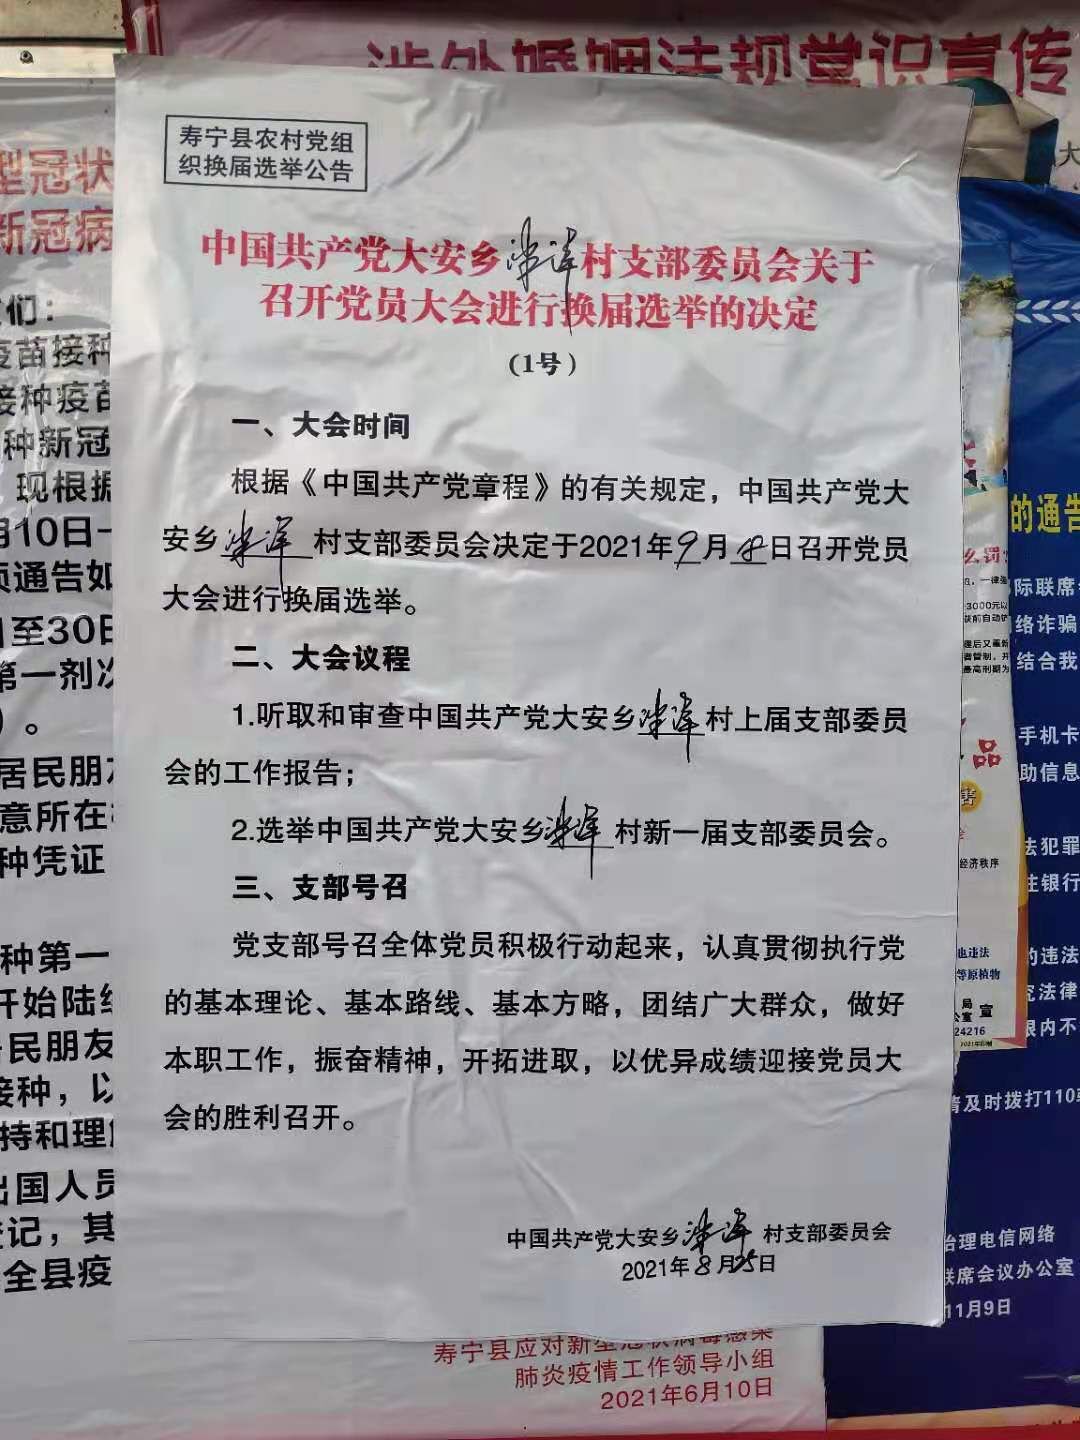 涉外婚姻法规常识宣传
寿宁县农村党组
织换届选举公告
中国共产党大安乡泮洋村支部委员会关于
召开党员大会进行换届选举的决定
(1号)
一、大会时间
根据《中国共产党章程》的有关规定，中国共产党大
安乡泮洋村支部委员会决定于2021年9月8日召开党员
大会进行换届选举。
二、大会议程
1.听取和审查中国共产党大安乡泮洋村上届支部委员
会的工作报告；
2.选举中国共产党大安乡泮洋村新一届支部委员会。
三、支部号召
党支部号召全体党员积极行动起来，认真贯彻执行党
的基本理论、基本路线、基本方略，团结广大群众，做好
本职工作，振奋精神，开拓进取，以优异成绩迎接党员大
会的胜利召开。
中国共产党大安乡泮洋村支部委员会
2021年8月25日
型冠状
新冠病
们：
疫苗接种
接种疫苗
种新冠
现根据
月10日
项通告如
日至30日
第一剂次
）。
居民朋友
意所在
种凭证
种第一
开始陆续
居民朋友
接种，以
持和理解
出国人员
登记，其
全县疫
寿宁县应对新型冠状病毒感染
肺炎疫情工作领导小组
2021年6月10日
大
的通告
么罚
一律强
3000元以
品
经济秩序
也违法
等原植物
局
公室 宣
24216
2021年印制
际联席
络诈骗
结合我
手机卡
助信息
法犯罪
银行
的违法
法律
限内不
请及时拨打110
治理电信网络
联席会议办公室
11月9日